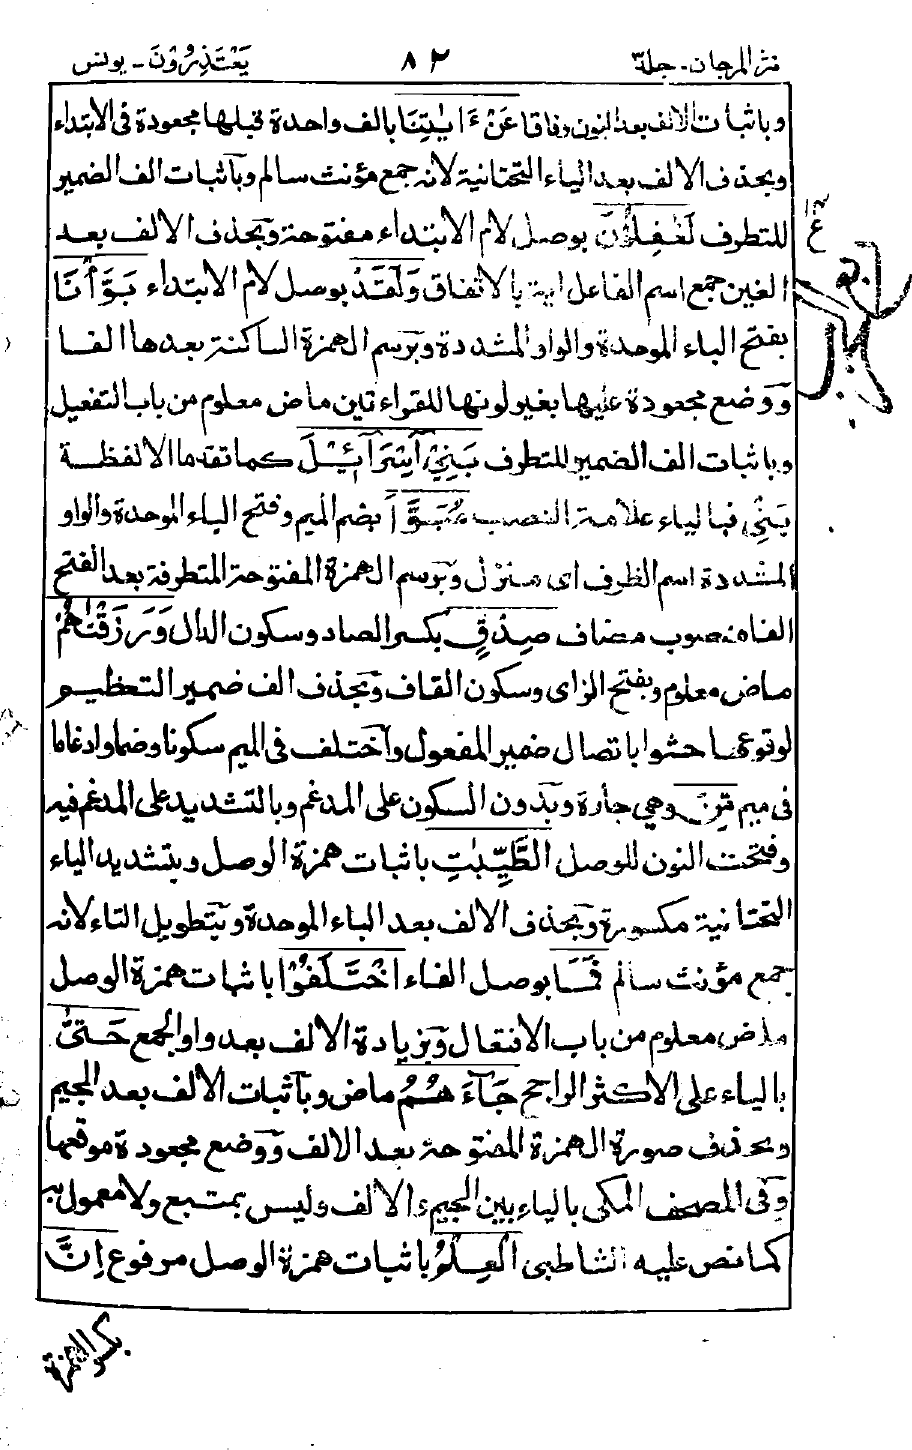 نثر المرجان - جلد ٣
٨٢
يَعْتَذِرُوْنَ - يونس
وباثبات الالف بعد النون وفاقا عَنْ ءَايٰتِنَا بالف واحدة قبلها مجعودة فى الابتداء
وبحذف الالف بعد الياء التحتانية لانه جمع مؤنث سالم وبآثبات الف الضمير
للتطرف لَغٰفِلُوْنَ بوصل لام الابتداء مفتوحة وبحذف الالف بعد
الغين جمع اسم الفاعل اية بالاتفاق وَلَقَدْ بوصل لام الابتداء بَوَّأْنَا
بفتح الباء الموحدة والواو المشددة وبرسم الهمزة الساكنة بعدها الفا
ووضع مجعودة عليها بغير لونها للقراءتين ماض معلوم من باب التفعيل
وباثبات الف الضمير للتطرف بَنِيْٓ اِسْرَآءِيْلَ كما تقدما الا لفظة
بَنِيْ فبالياء علامة النصب مُبَوَّاَ بضم الميم وفتح الباء الموحدة والواو
المشددة اسم الظرف اى منزل وبرسم الهمزة المفتوحة المتطرفة بعد الفتح
الفا منصوب مضاف صِدْقٍ بكسر الصاد وسكون الدال وَرَزَقْنٰهُمْ
ماض معلوم وبفتح الزاى وسكون القاف وبحذف الف ضمير التعظيم
لوقوعها حشوا باتصال ضمير المفعول واختلف فى الميم سكونا وضما وادغاما
فى ميم مِّنَ وهى جارة وبدون السكون على المدغم وبالتشديد على المدغم فيه
وفتحت النون للوصل الطَّيِّبٰتِ باثبات همزة الوصل وبتشديد الياء
التحتانية مكسورة وبحذف الالف بعد الباء الموحدة وبتطويل التاء لانه
جمع مؤنث سالم فَمَا بوصل الفاء اخْتَلَفُوْا باثبات همزة الوصل
ماض معلوم من باب الافتعال وبزيادة الالف بعد واو الجمع حَتّٰى
بالياء على الاكثر الراجح جَآءَهُمُ ماض وبآثبات الالف بعد الجيم
وبحذف صورة الهمزة المفتوحة بعد الالف ووضع مجعودة موقعها
وفى المصحف المكى بالياء بين الجيم والالف وليس بمتبع ولا معمول به
كما نص عليه الشاطبى الْعِلْمُ باثبات همزة الوصل مرفوع اِنَّ
بكسر الهمزة